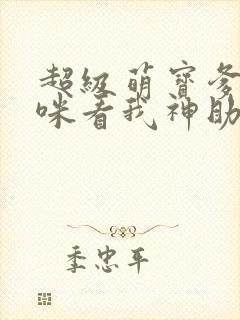 超级萌宝爹
咪看我神助
季忠平